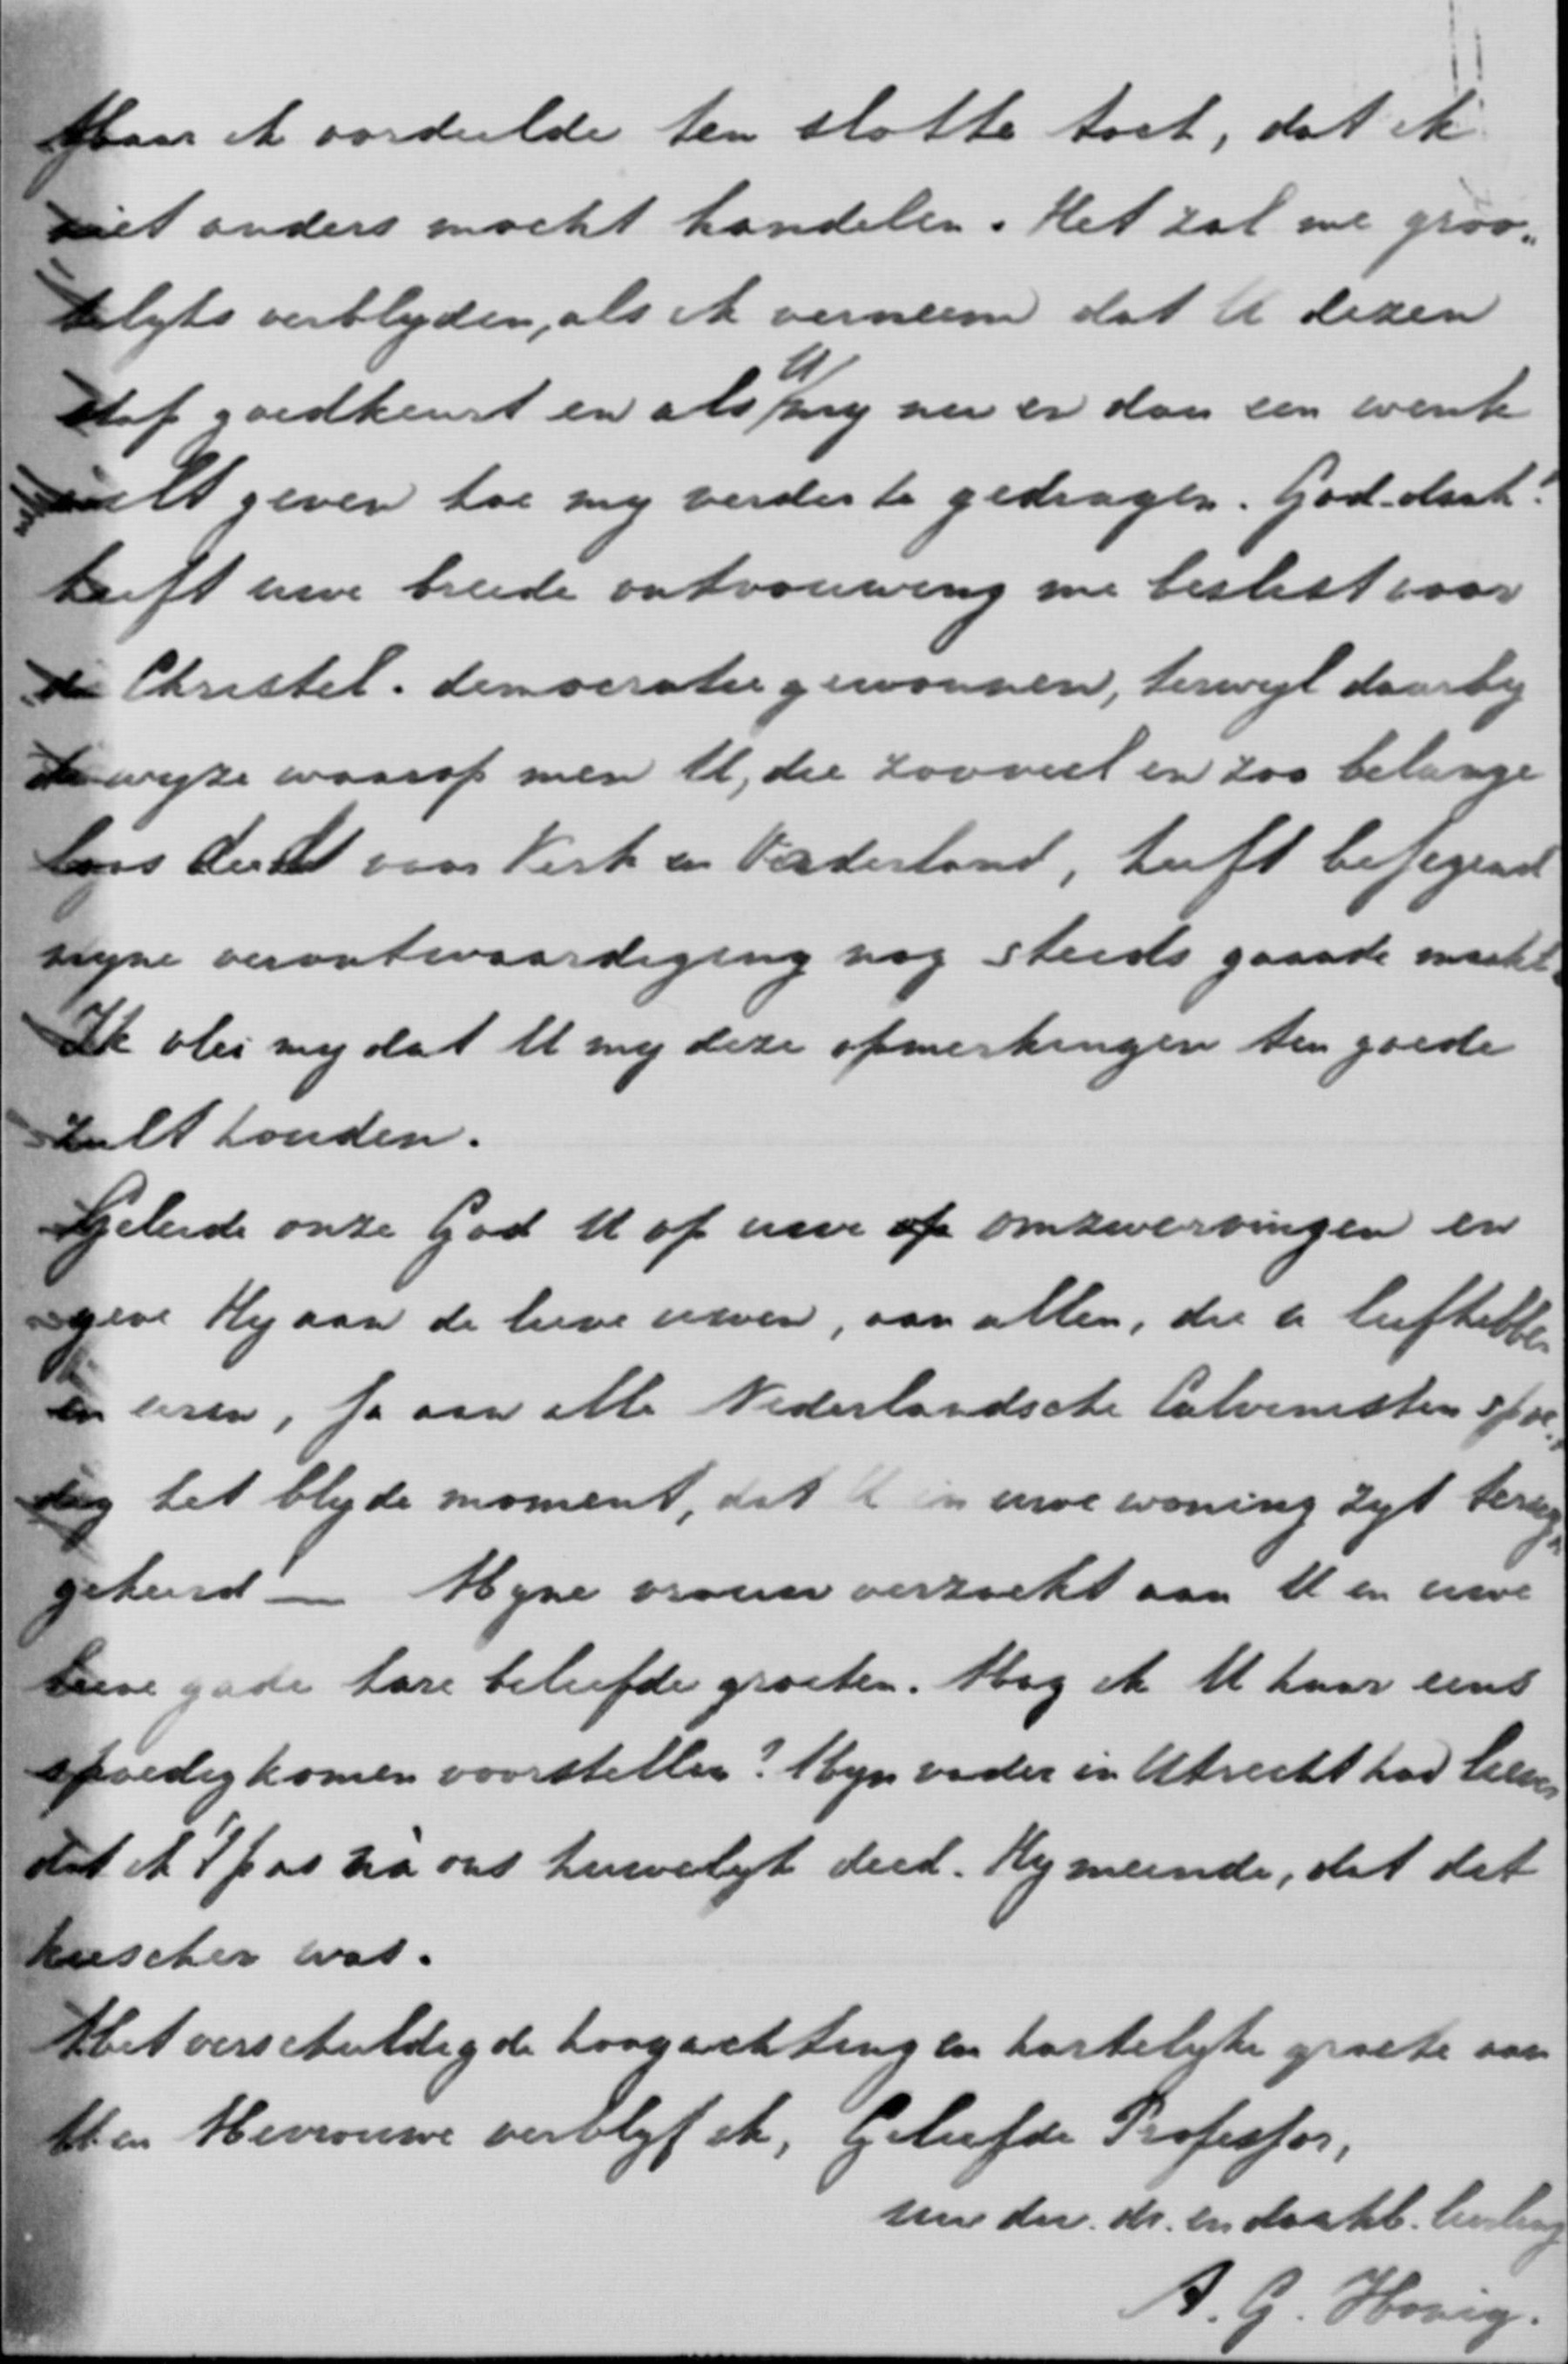 Maar ik oordeelde ten slotte toch, dat ik
niet anders mocht handelen. Het zal me groo„
telyks verblyden, als ik verneem dat U dezen
stap goedkeurt en als U my nu en dan een wenk
wilt geven hoe my verder te gedragen. God-dank!
heeft uwe breede ontvouwing me beslist voor
de Christel. democratie gewonnen, terwyl daarby
de wyze waarop men U, die zooveel en zoo belange
loos deedt voor Kerk en Vaderland, heeft bejegend
myne verontwaardiging nog steeds gaande maakt.
Ik vlei my dat U my deze opmerkingen ten goede
zult houden.
Geleide onze God U op uwe omzwervingen en
geve Hy aan de lieve uwen, aan allen, die u liefhebben
en eren, ja aan alle Nederlandsche Calvinisten spoe„
dig het blyde moment, dat U in uwe woning zyt terug„
gekeerd — Myne vrouw verzoekt aan U en uwe
lieve gade hare beleefde groeten. Mag ik U haar eens
spoedig komen voorstellen? Myn vader in Utrecht had liever
dat ik 't pas nà ons huwelyk deed. Hy meende, dat dat
kiescher was.
Met verschuldigde hoogachting en hartelyke groete aan
U en Mevrouwe verblyf ik, Geliefde Professor,
uw dw. dr. en dankb. leerling
A. G. Honig.